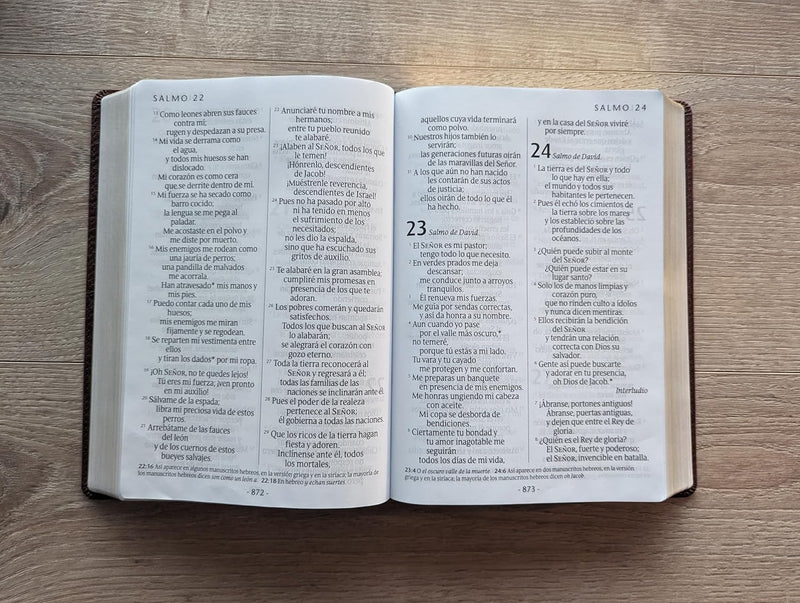 SALMO 22
13 Como leones abren sus fauces
contra mí;
rugen y despedazan a su presa.
14 Mi vida se derrama como
el agua,
y todos mis huesos se han
dislocado.
Mi corazón es como cera
que se derrite dentro de mí.
15 Mi fuerza se ha secado como
barro cocido;
la lengua se me pega al
paladar.
Me acostaste en el polvo y
me diste por muerto.
16 Mis enemigos me rodean como
una jauría de perros;
una pandilla de malvados
me acorrala.
Han atravesado* mis manos y
mis pies.
17 Puedo contar cada uno de mis
huesos;
mis enemigos me miran
fijamente y se regodean.
18 Se reparten mi vestimenta entre
ellos
y tiran los dados* por mi ropa.
19 ¡Oh SEÑOR, no te quedes lejos!
Tú eres mi fuerza; ¡ven pronto
en mi auxilio!
20 Sálvame de la espada;
libra mi preciosa vida de estos
perros.
21 Arrebátame de las fauces
del león
y de los cuernos de estos
bueyes salvajes.
22 Anunciaré tu nombre a mis
hermanos;
entre tu pueblo reunido
te alabaré.
23 ¡Alaben al SEÑOR, todos los que
le temen!
¡Hónrenlo, descendientes
de Jacob!
¡Muéstrenle reverencia,
descendientes de Israel!
24 Pues no ha pasado por alto
ni ha tenido en menos
el sufrimiento de los
necesitados;
no les dio la espalda,
sino que ha escuchado sus
gritos de auxilio.
25 Te alabaré en la gran asamblea;
cumpliré mis promesas en
presencia de los que te
adoran.
26 Los pobres comerán y quedarán
satisfechos.
Todos los que buscan al SEÑOR
lo alabarán;
se alegrará el corazón con
gozo eterno.
27 Toda la tierra reconocerá al
SEÑOR y regresará a él;
todas las familias de las
naciones se inclinarán ante él.
28 Pues el poder de la realeza
pertenece al SEÑOR;
él gobierna a todas las naciones.
29 Que los ricos de la tierra hagan
fiesta y adoren;
Inclínense ante él, todos
los mortales,
22:16 Así aparece en algunos manuscritos hebreos, en la versión griega y en la siríaca; la mayoría de
los manuscritos hebreos dicen son como un león a. 22:18 En hebreo y echan suertes.
- 872 -
SALMO 24
aquellos cuya vida terminará
como polvo.
30 Nuestros hijos también lo
servirán;
las generaciones futuras oirán
de las maravillas del Señor.
31 A los que aún no han nacido
les contarán de sus actos
de justicia;
ellos oirán de todo lo que él
ha hecho.
23 Salmo de David.
1 El SEÑOR es mi pastor;
tengo todo lo que necesito.
2 En verdes prados me deja
descansar;
me conduce junto a arroyos
tranquilos.
3 Él renueva mis fuerzas.
Me guía por sendas correctas,
y así da honra a su nombre.
4 Aun cuando yo pase
por el valle más oscuro,*
no temeré,
porque tú estás a mi lado.
Tu vara y tu cayado
me protegen y me confortan.
5 Me preparas un banquete
en presencia de mis enemigos.
Me honras ungiendo mi cabeza
con aceite.
Mi copa se desborda de
bendiciones.
6 Ciertamente tu bondad y
tu amor inagotable me
seguirán
todos los días de mi vida,
y en la casa del SEÑOR viviré
por siempre.
24 Salmo de David.
1 La tierra es del SEÑOR y todo
lo que hay en ella;
el mundo y todos sus
habitantes le pertenecen.
2 Pues él echó los cimientos de
la tierra sobre los mares
y los estableció sobre las
profundidades de los
océanos.
3 ¿Quién puede subir al monte
del SEÑOR?
¿Quién puede estar en su
lugar santo?
4 Solo los de manos limpias y
corazón puro,
que no rinden culto a ídolos
y nunca dicen mentiras.
5 Ellos recibirán la bendición
del SEÑOR
y tendrán una relación
correcta con Dios su
salvador.
6 Gente así puede buscarte
y adorar en tu presencia,
oh Dios de Jacob.*
Interludio
7 ¡Ábranse, portones antiguos!
Ábranse, puertas antiguas,
y dejen que entre el Rey de
gloria.
8 ¿Quién es el Rey de gloria?
El SEÑOR, fuerte y poderoso;
el SEÑOR, invencible en batalla.
23:4 O el oscuro valle de la muerte. 24:6 Así aparece en dos manuscritos hebreos, en la versión
griega y en la siríaca; la mayoría de los manuscritos hebreos dicen oh Jacob.
- 873 -